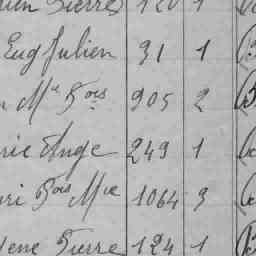 Pierre 120 1
Eug Julien 31 1
Mie Fois 905 2
rie Ange 249 1
ri Fois Mie 1064 3
ene Pierre 124 1